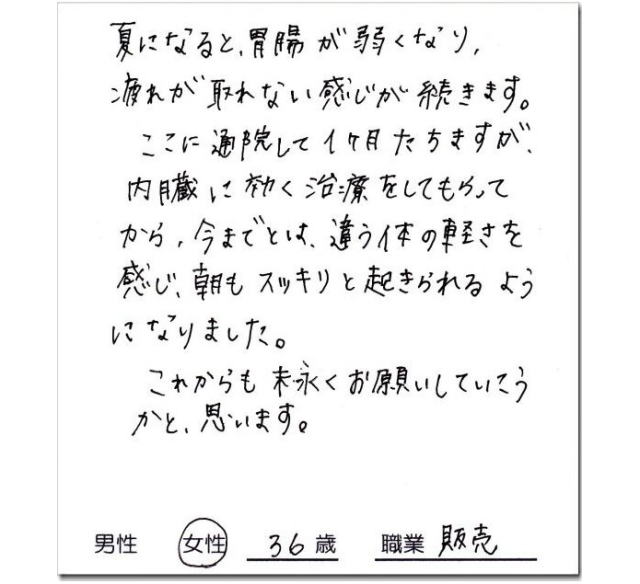 夏になると、胃腸が弱くなり、
疲れが取れない感じが続きます。
ここに通院して1ヶ月たちますが、
内臓に効く治療をしてもらって
から、今までとは、違う体の軽さを
感じ、朝もスッキリと起きられるよう
になりました。
これからも末永くお願いしていこう
かと、思います。
男性 女性 36歳 職業 販売